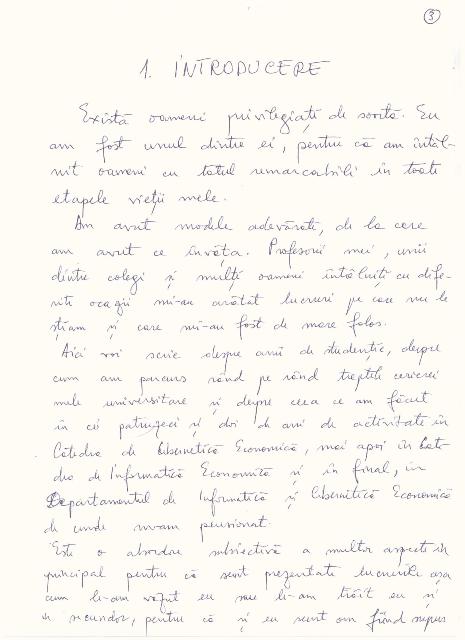 3
1. INTRODUCERE
Există oameni privilegiați de soartă. Eu
am fost unul dintre ei, pentru că am întâl-
nit oameni cu totul remarcabili în toate
etapele vieții mele.
Am avut modele adevărate, de la care
am avut ce învăța. Profesorii mei, unii
dintre colegi și mulți oameni întâlniți cu dife-
rite ocazii mi-au arătat lucruri pe care nu le
știam și care mi-au fost de mare folos.
Aici voi scrie despre anii de studenție, despre
cum am parcurs rând pe rând treptele carierei
mele universitare și despre ceea ce am făcut
în cei patruzeci și doi de ani de activitate în
Catedra de Cibernetică Economică, mai apoi în Cate-
dra de Informatică Economică și în final, în
Departamentul de Informatică și Cibernetică Economică
de unde m-am pensionat.
Este o abordare subiectivă a multor aspecte în
principal pentru că sunt prezentate lucrurile așa
cum le-am văzut eu sau le-am trăit eu și
în secundar, pentru că și eu sunt om fiind supus